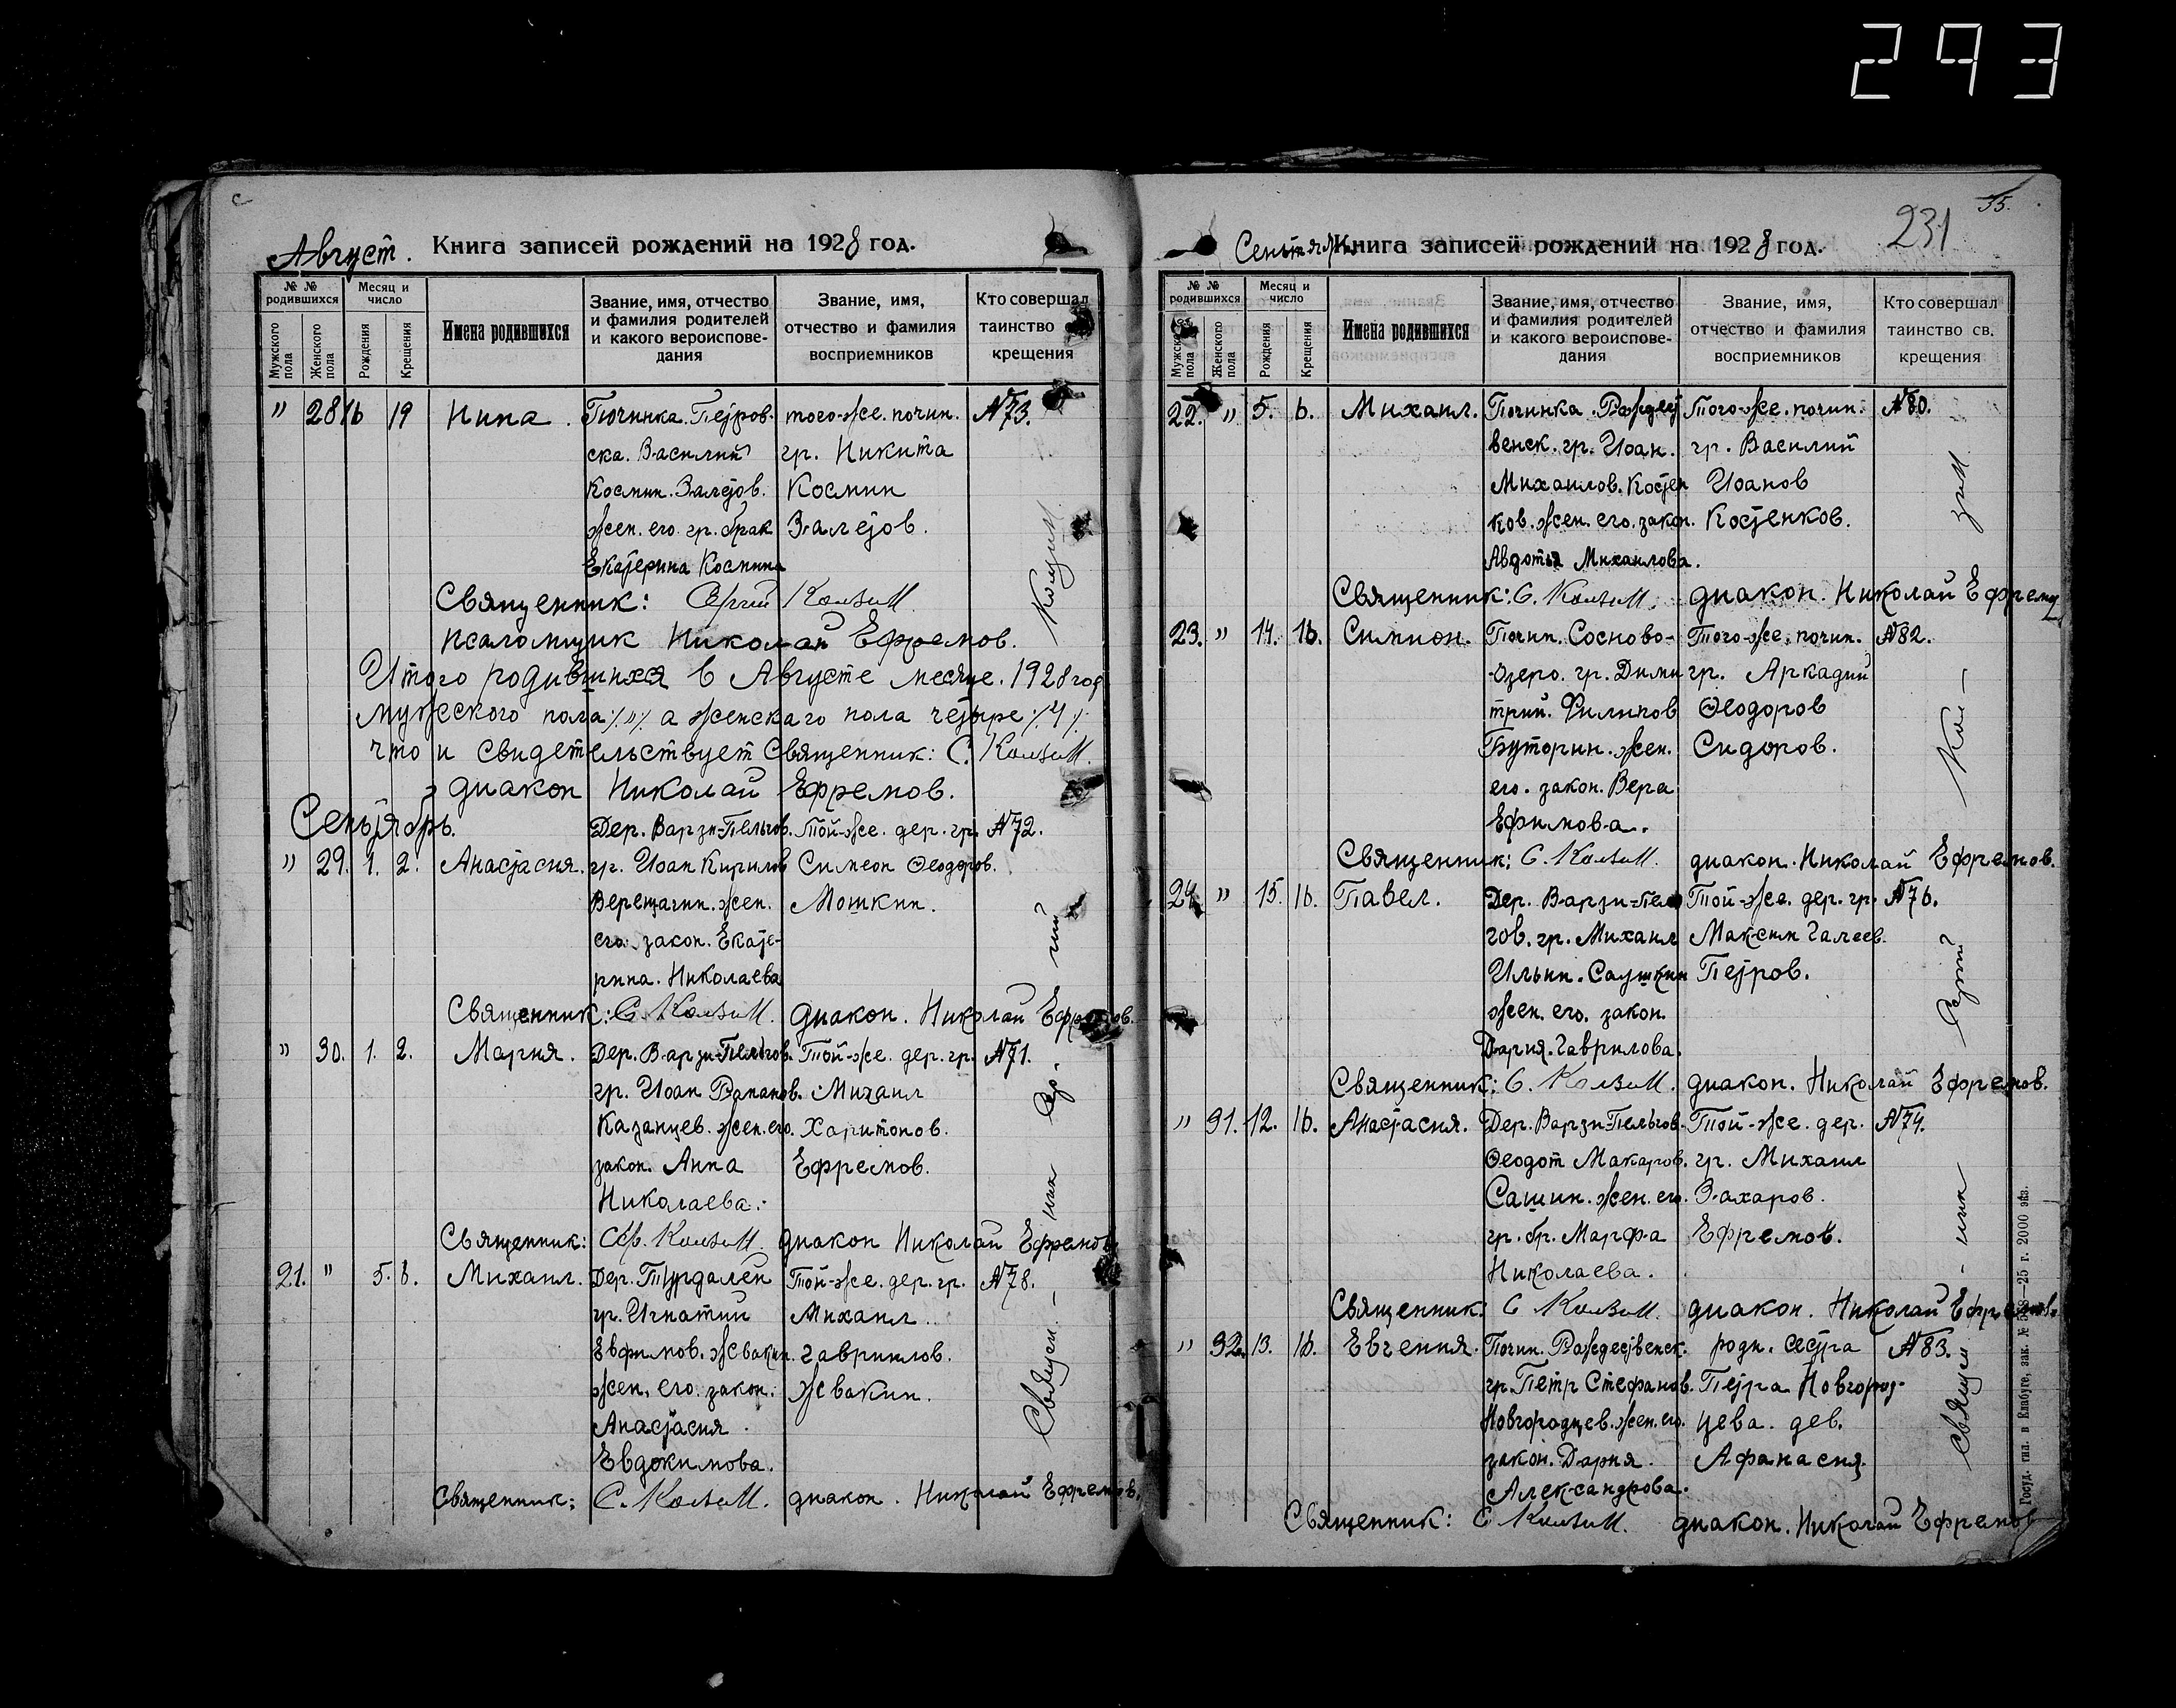 293
Август. Книга записей рождений на 1928 год.
№ № родившихся
Месяц и число
Мужского пола
Женского пола
Рождения
Крещения
Имена родившихся
Звание, имя, отчество и фамилия родителей и какого вероисповедания
Звание, имя, отчество и фамилия восприемников
Кто совершал таинство крещения
" 28 16 19 Нина. Починка. Петров- того-же. почин. №73.
ска. Василий гр. Никита
Космин. Залетов. Космин
жен. его. гр. брак Залетов.
Екатерина Космина
Священник: Сергий
псаломщик Николай Ефремов.
Итого родившихся в Августе месяце. 1928 год
мужеского пола /"/ а женскаго пола четыре /4/
что и свидетельствует Священник: С.
диакон Николай Ефремов.
Сентябрь. Дер. Варзи-Пельгов. Той-же. дер. гр. №72.
" 29. 1. 2. Анастасия. гр. Иоан Кирилов Симеон Ѳеодоров.
Верещагин. жен. Мошкин.
его. закон. Екате-
рина. Николаева
Священник: С. диакон. Николай Ефремов.
" 30. 1. 2. Мария. Дер. Варзи-Пельгов. Той-же. дер. гр. №71.
гр. Иоан Романов. Михаил
Казанцев. жен. его. Харитонов.
закон. Анна Ефремов.
Николаева.
Священник: диакон Николай Ефремов
21. " 5. 6. Михаил. Дер. Турдалей Той-же. дер. гр. №78.
гр. Игнатий Михаил
Евфимов. Жвакин. Гаврилов.
жен. его. закон. Жвакин.
Анастасия
Евдокимова.
Священник: С. диакон. Николай Ефремов.
Священ- ник Сер- гий
35.
231
Сентябрь Книга записей рождений на 1928 год.
№ № родившихся
Месяц и число
Мужского пола
Женского пола
Рождения
Крещения
Имена родившихся
Звание, имя, отчество и фамилия родителей и какого вероисповедания
Звание, имя, отчество и фамилия восприемников
Кто совершал таинство св. крещения
22. " 5. 6. Михаил. Починка. Рождест Того-же. почин. №80.
венск. гр. Иоан. гр. Василий
Михаилов. Костен Иоанов
ков. жен. его. закон. Костенков.
Авдотья Михаилова.
Священник: С. диакон. Николай Ефремов
23. " 14. 16. Симион. Почин. Сосново- Того-же. почин. №82.
-озеро. гр. Дими гр. Аркадий
трий. Филипов Ѳеодоров
Буторин. жен. Сидоров.
его. закон. Вера
Ефимова.
Священник: С. диакон. Николай Ефремов.
24. " 15. 16. Павел. Дер. Варзи-Пель Той-же. дер. гр. №76.
гов. гр. Михаил Максим Галеев.
Ильин. Саушкин Петров.
жен. его. закон.
Дария. Гаврилова.
Священник: С. диакон. Николай Ефремов.
" 31. 12. 16. Анастасия. Дер. Варзи-Пельгов. Той-же. дер. №74.
Ѳеодот Макаров. гр. Михаил
Сашин. жен. его. Захаров.
гр. бр. Марфа Ефремов.
Николаева.
Священник: С диакон. Николай Ефремов.
" 32. 13. 16. Евгения. Почин. Рождественск. родн. сестра №83.
гр. Петр Стефанов. Петра Новгород-
Новгородцев. жен. его. цева. дев.
закон. Дария. Афанасия.
Александрова.
Священник: С диакон. Николай Ефремов
Священ- ник Сергий
Госуд. тип. в Елабуге, зак. № 25 г. 2000 экз.